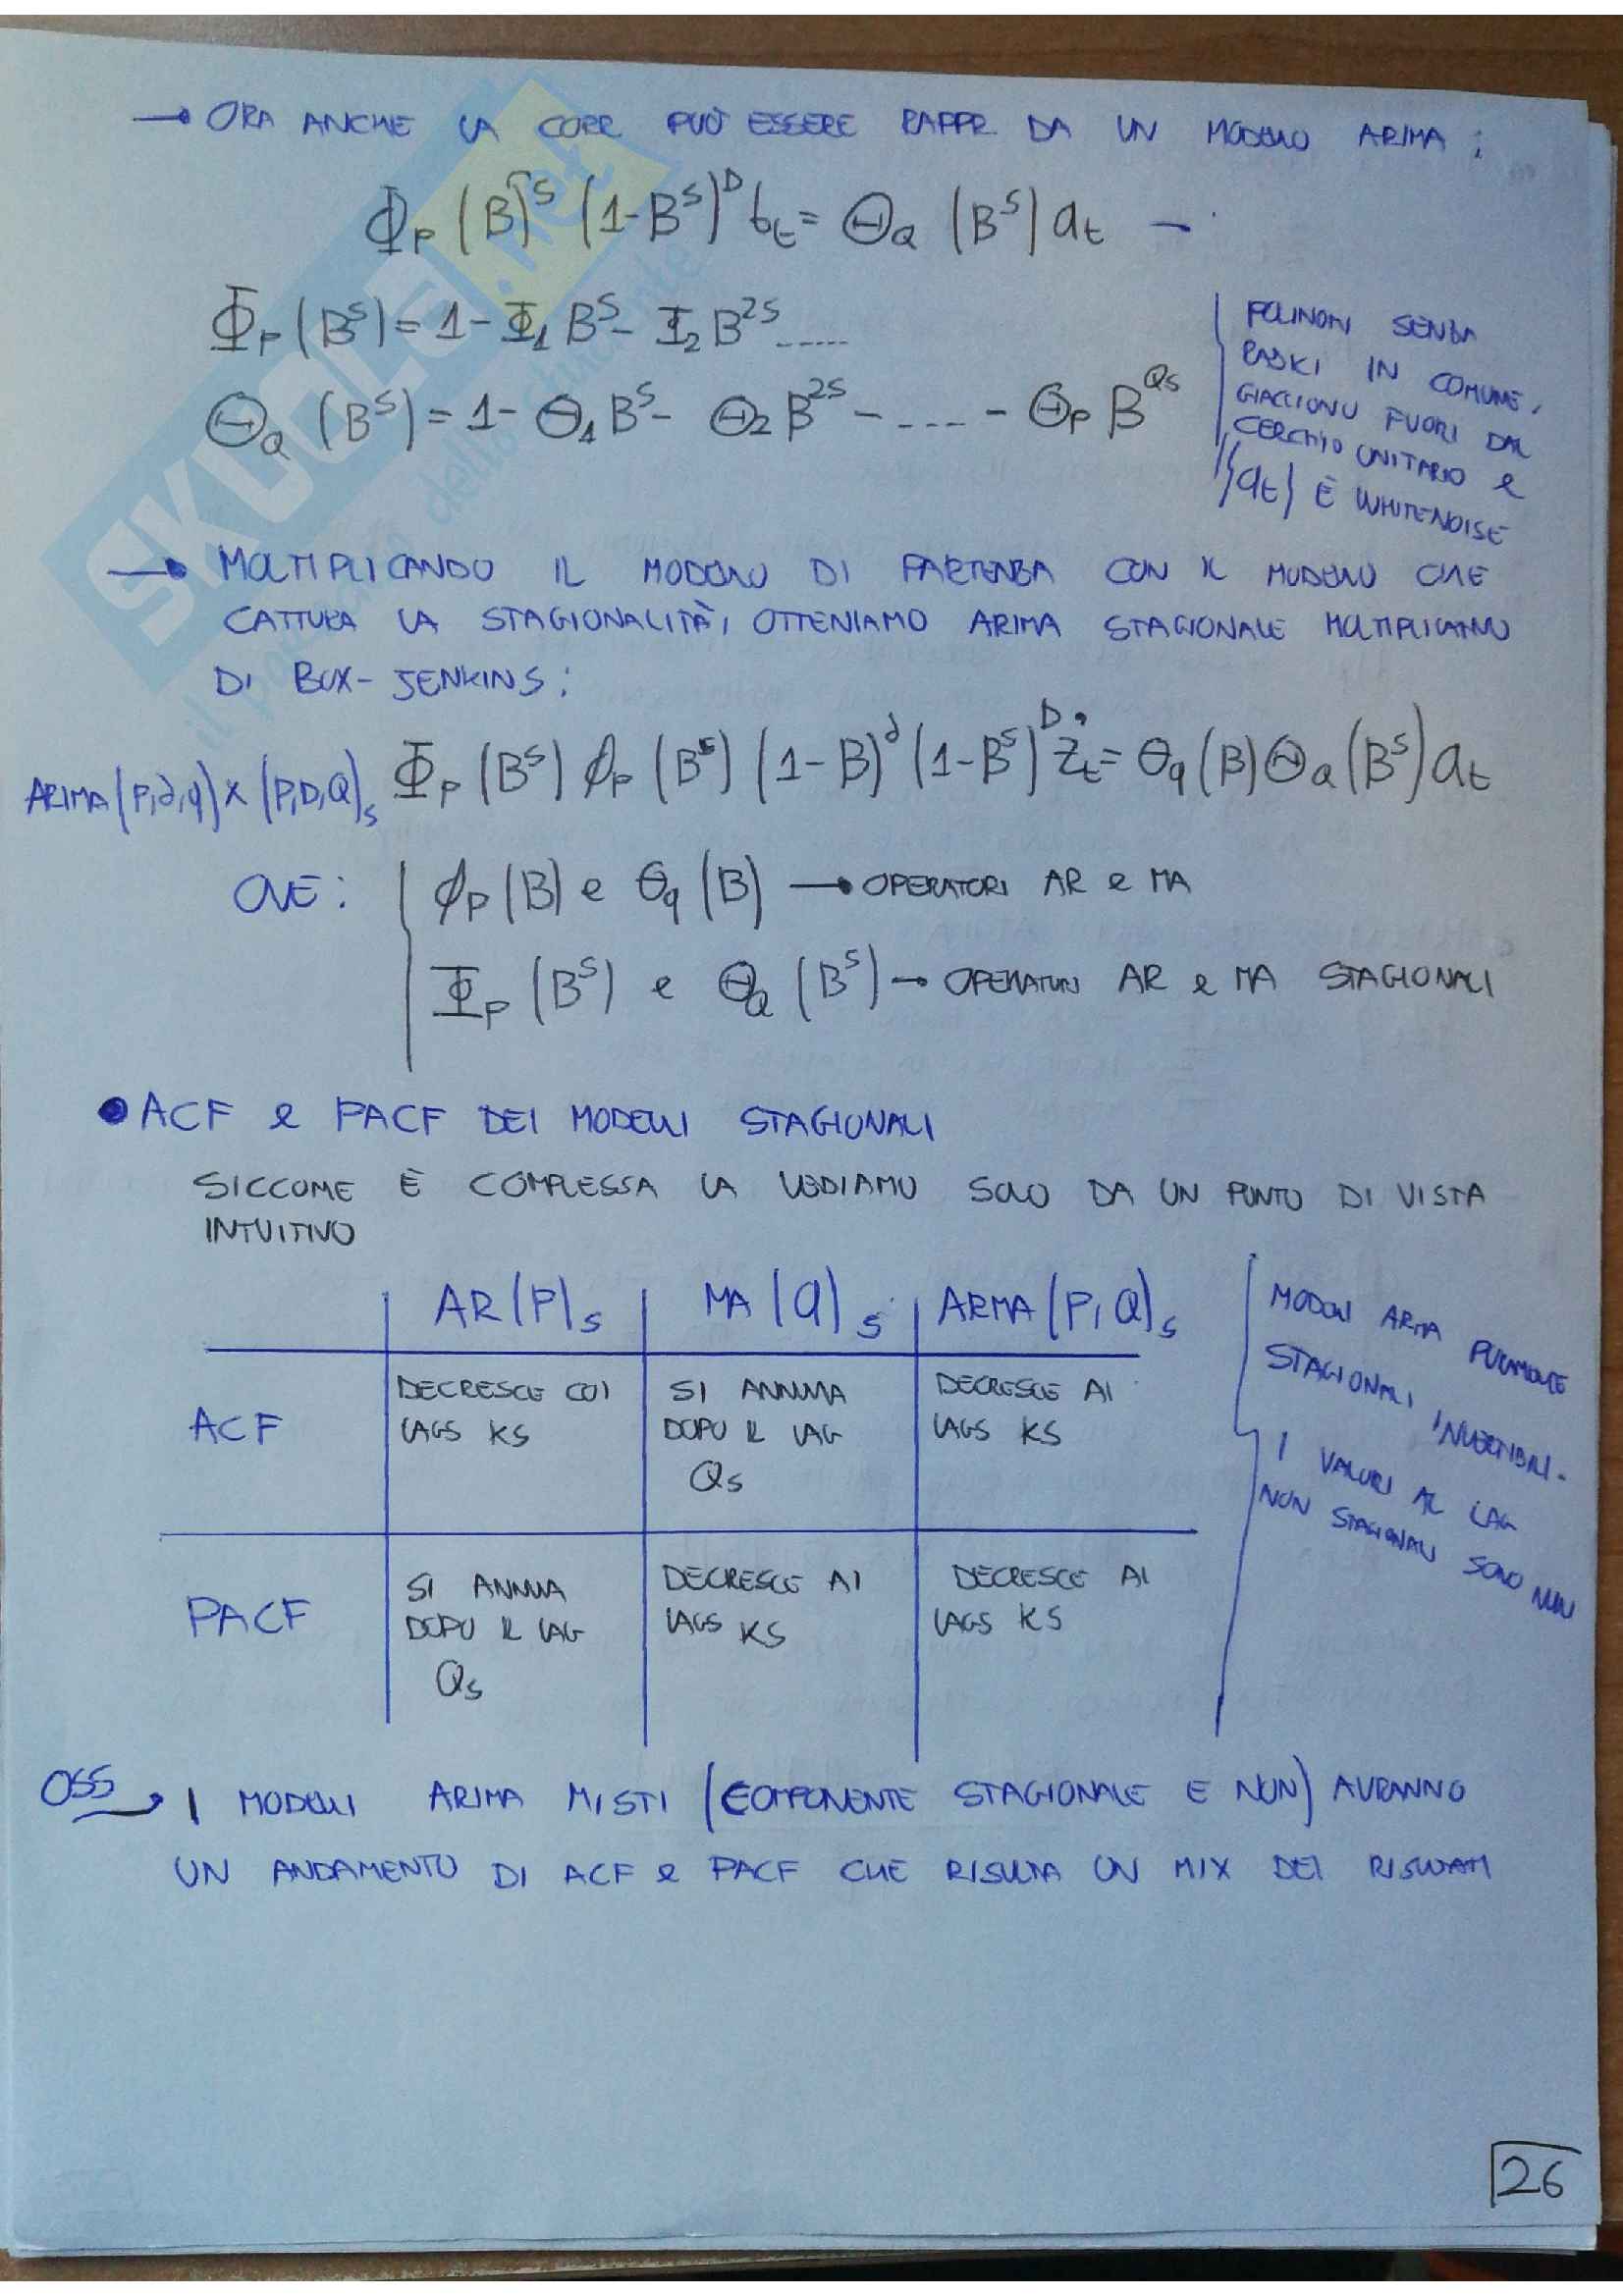 → ORA ANCHE LA CORR PUÒ ESSERE RAPPR. DA UN MODELLO ARIMA:
Φ_P (B)^S (1-B^S)^D b_t = Θ_Q (B^S) a_t -
Φ_P (B^S) = 1 - Φ_1 B^S - Φ_2 B^2S .....
Θ_Q (B^S) = 1 - Θ_1 B^S - Θ_2 B^2S - .... - Θ_P B^QS
POLINOMI SENZA
RADICI IN COMUNE,
GIACCIONO FUORI DAL
CERCHIO UNITARIO e
{a_t} È WHITENOISE
→ MOLTIPLICANDO IL MODELLO DI PARTENZA CON IL MODELLO CHE
CATTURA LA STAGIONALITÀ, OTTENIAMO ARIMA STAGIONALE MOLTIPLICATIVO
DI BOX-JENKINS:
ARIMA(p,d,q) x (P,D,Q)_S Φ_P (B^S) ϕ_p (B^S) (1-B)^d (1-B^S)^D Ż_t = θ_q (B) Θ_Q (B^S) a_t
OVE: ϕ_p (B) e θ_q (B) → OPERATORI AR e MA
Φ_P (B^S) e Θ_Q (B^S) → OPERATORI AR e MA STAGIONALI
• ACF e PACF DEI MODELLI STAGIONALI
SICCOME È COMPLESSA LA VEDIAMO SOLO DA UN PUNTO DI VISTA
INTUITIVO
AR(P)_S MA(Q)_S ARMA(P,Q)_S
ACF
DECRESCE COI
LAGS KS
SI ANNULLA
DOPO IL LAG
QS
DECRESCE AI
LAGS KS
PACF
SI ANNULLA
DOPO IL LAG
QS
DECRESCE AI
LAGS KS
DECRESCE AI
LAGS KS
MODELLI ARMA PURAMENTE
STAGIONALI INVERTIBILI.
I VALORI AL LAG
NON STAGIONALI SONO NULLI
OSS → I MODELLI ARIMA MISTI (COMPONENTE STAGIONALE E NON) AVRANNO
UN ANDAMENTO DI ACF e PACF CHE RISULTA UN MIX DEI RISULTATI
26
SKUOLA.net
il paradiso dello studente